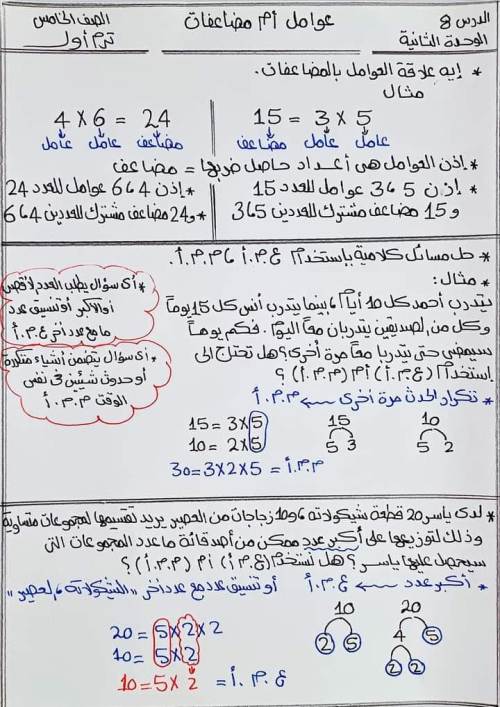 الدرس 8
الوحدة الثانية
عوامل أم مضاعفات
الصف الخامس
ترم أول
* إيه علاقة العوامل بالمضاعفات.
مثال
15 = 3 × 5
مضاعف عامل عامل
4 × 6 = 24
عامل عامل مضاعف
* إذن العوامل هى أعداد حاصل ضربها = مضاعف
* إذن 5 و 3 عوامل للعدد 15
و 15 مضاعف مشترك للعددين 5 و 3
* إذن 4 و 6 عوامل للعدد 24
* و 24 مضاعف مشترك للعددين 4 و 6
* حل مسائل كلامية بإستخدام ع.م.أ ، م.م.أ.
* مثال:
يتدرب أحمد كل 10 أيام ، بينما يتدرب أنس كل 15 يوماً
وكل من لصديقين يتدربان معاً اليوم. فكم يوماً
سيمضى حتى يتدربا معاً مرة أخرى؟ هل تحتاج الى
إستخدام (ع.م.أ) أم (م.م.أ) ؟
* تكرار الحدث مرة أخرى ← م.م.أ
* أى سؤال يطلب العدد لأقصى
أو الأكبر أو تنسيق عدد
ما مع عدد أخر ع.م.أ
* أى سؤال يتضمن أشياء متكررة
أو حدوث شيئين فى نفس
الوقت م.م.أ
10
5 2
15
5 3
15 = 3 × 5
10 = 2 × 5
م.م.أ = 5 × 2 × 3 = 30
* لدى ياسر 20 قطعة شيكولاته و 10 زجاجات من العصير يريد تقسيمها لمجموعات متساوية
وذلك لتوزيعها على أكبر عدد ممكن من أصدقائة ما عدد المجموعات التى
سيحصل عليها ياسر؟ هل نستخدم (ع.م.أ) أم (م.م.أ) ؟
* أكبر عدد ← ع.م.أ أو تنسيق عدد مع عدد أخر "الشيكولاته و لعصير"
20
4 5
2 2
10
2 5
20 = 5 × 2 × 2
10 = 5 × 2
ع.م.أ = 2 × 5 = 10